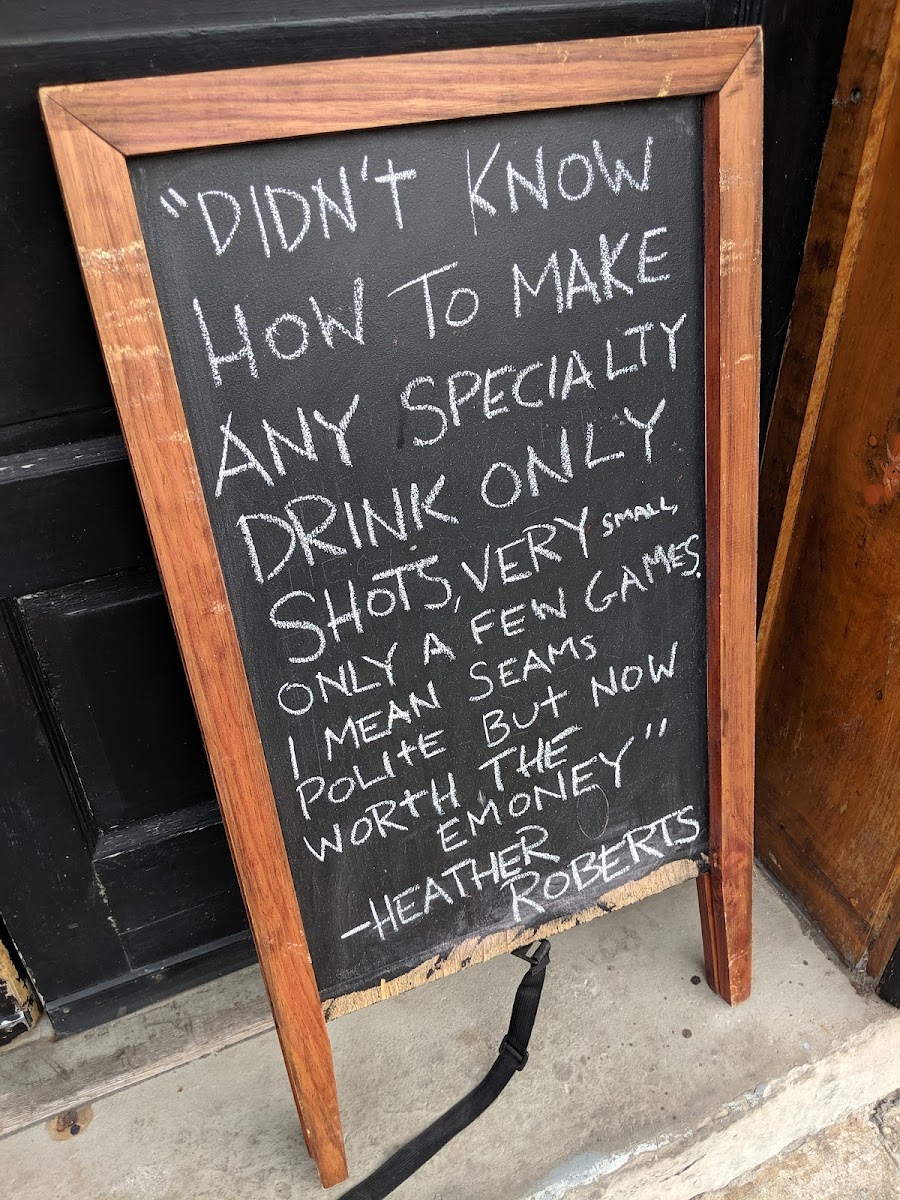 "DIDN't KNOW
HOW TO MAKE
ANY SPECIALTY
DRINK ONLY
SHOTS, VERY SMALL,
ONLY A FEW GAMES.
I MEAN SEAMS
POLITE BUT NOW
WORTH THE
EMONEY"
-HEATHER
ROBERTS